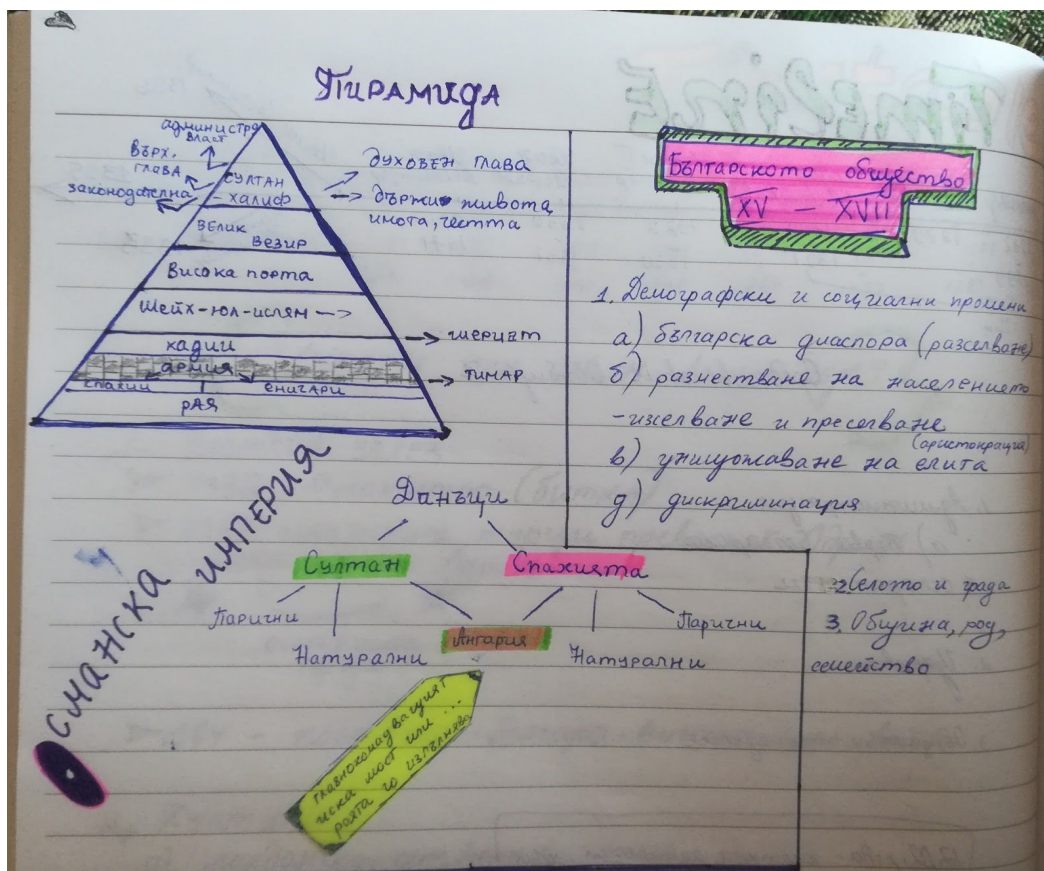 Пирамида
администр.
власт
върх.
глава
законодателна
султан
- халиф
духовен глава
държи живота,
имота, честта
велик
везир
Висока порта
Шейх-юл-ислям
хадии
шериат
армия
спахии
еничари
тимар
рАЯ
Османска империя
Данъци
Султан
Спахията
Парични
Натурални
Ангария
Натурални
Парични
главнокомадващият
иска мост или ...
раята го изпълнява
Timeline
Българското общество
XV — XVII
1. Демографски и социални промени
а) българска диаспора (разселване)
б) разместване на населението
- изселване и преселване
(аристокрация)
в) унищожаване на елита
д) дискриминация
2. Селото и града
3. Община, род,
семейство